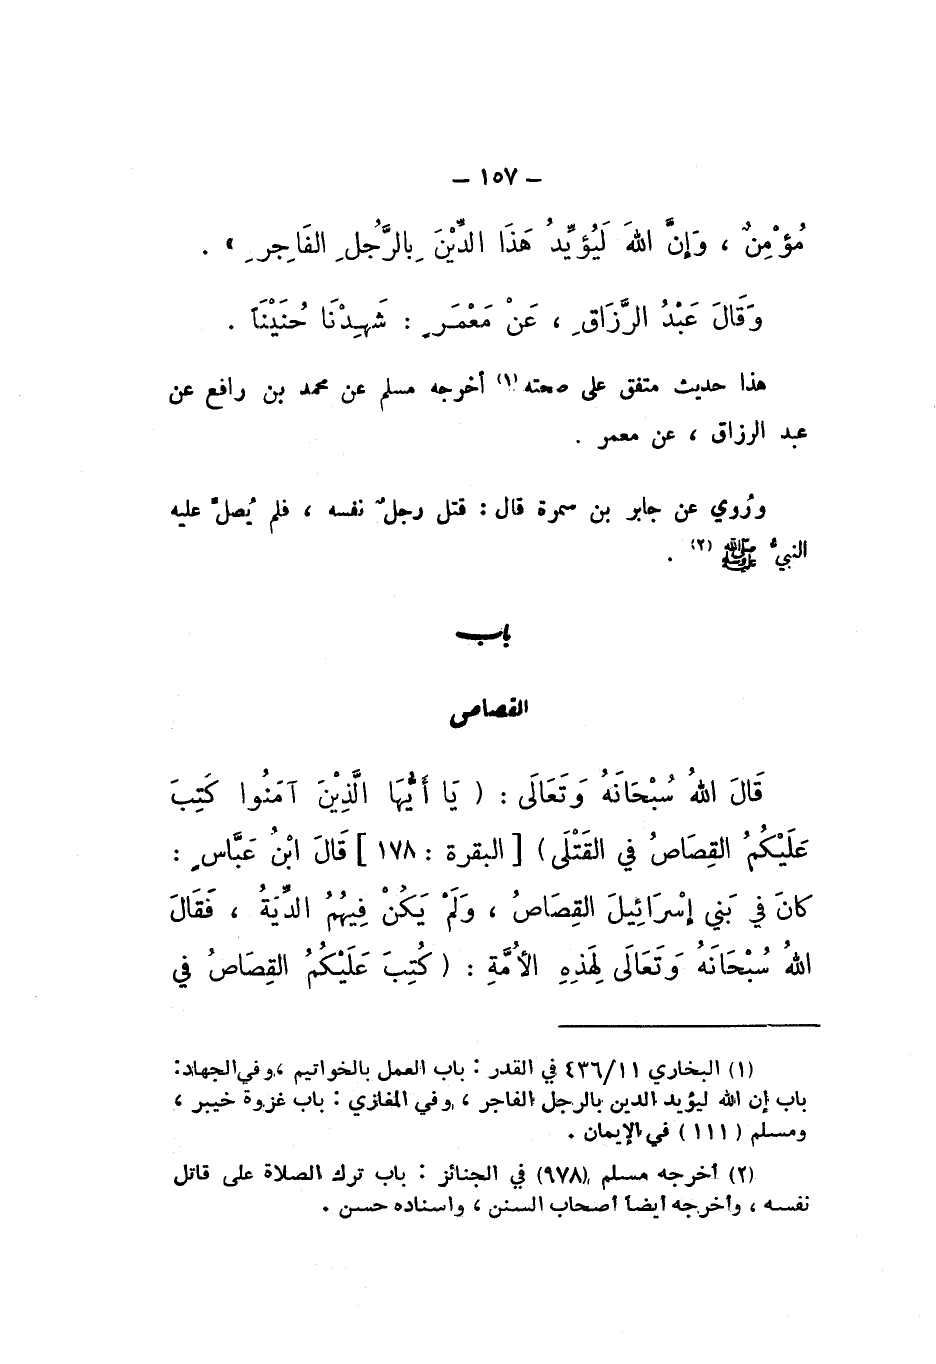 - ١٥٧ -
مُؤْمِنٌ ، وَإِنَّ اللهَ لَيُؤَيِّدُ هَذَا الدِّيْنَ بِالرَّجُلِ الفَاجِرِ » .
وَقَالَ عَبْدُ الرَّزَاقِ ، عَنْ مَعْمَرٍ : شَهِدْنَا حُنَيْنَاً .
هذا حديث متفق على صحته (١) أخرجه مسلم عن محمد بن رافع عن
عبد الرزاق ، عن معمر .
ورُوي عن جابر بن سمرة قال : قتل رجلٌ نفسه ، فلم يُصلِّ عليه
النبيُّ ﷺ (٢) .
باب
القصاص
قَالَ اللهُ سُبْحَانَهُ وَتَعَالَى : ( يَا أَيُّهَا الَّذِيْنَ آمَنُوا كُتِبَ
عَلَيْكُمُ القِصَاصُ فِي القَتْلَى ) [ البقرة : ١٧٨ ] قَالَ ابْنُ عَبَّاسٍ :
كَانَ فِي بَنِي إِسْرَائِيلَ القِصَاصُ ، وَلَمْ يَكُنْ فِيهُمُ الدِّيَةُ ، فَقَالَ
اللهُ سُبْحَانَهُ وَتَعَالَى لِهَذِهِ الأُمَّةِ : ( كُتِبَ عَلَيْكُمُ القِصَاصُ فِي
(١) البخاري ٤٣٦/١١ في القدر : باب العمل بالخواتيم ، وفي الجهاد :
باب إن الله ليؤيد الدين بالرجل الفاجر ، وفي المغازي : باب غزوة خيبر ،
ومسلم (١١١) في الإيمان .
(٢) أخرجه مسلم (٩٧٨) في الجنائز : باب ترك الصلاة على قاتل
نفسه ، وأخرجه أيضاً أصحاب السنن ، واسناده حسن .